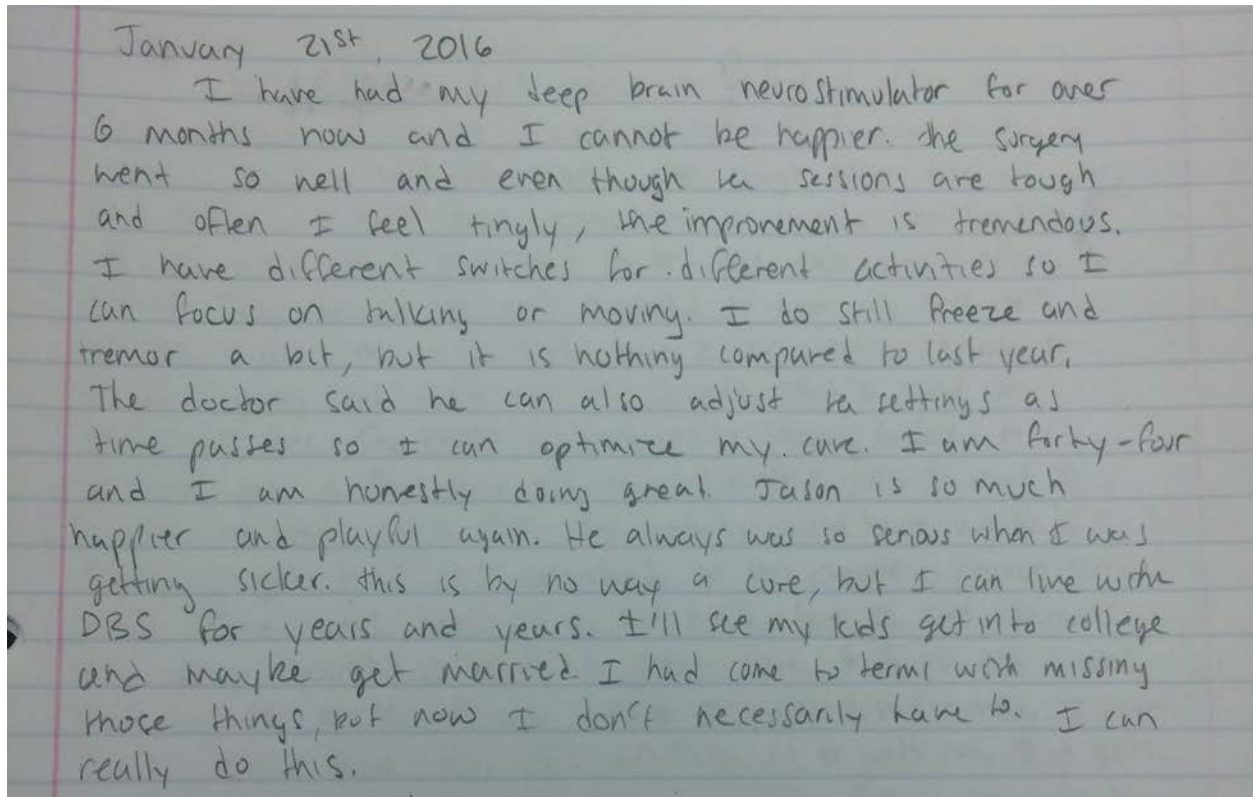 January 21st, 2016
I have had my deep brain neurostimulator for over
6 months now and I cannot be happier. The surgery
went so well and even though the sessions are tough
and often I feel tingly, the improvement is tremendous.
I have different switches for different activities so I
can focus on talking or moving. I do still freeze and
tremor a bit, but it is nothing compared to last year.
The doctor said he can also adjust the settings as
time passes so I can optimize my care. I am forty-four
and I am honestly doing great. Jason is so much
happier and playful again. He always was so serious when I was
getting sicker. This is by no way a cure, but I can live with
DBS for years and years. I'll see my kids get into college
and maybe get married. I had come to terms with missing
those things, but now I don't necessarily have to. I can
really do this.